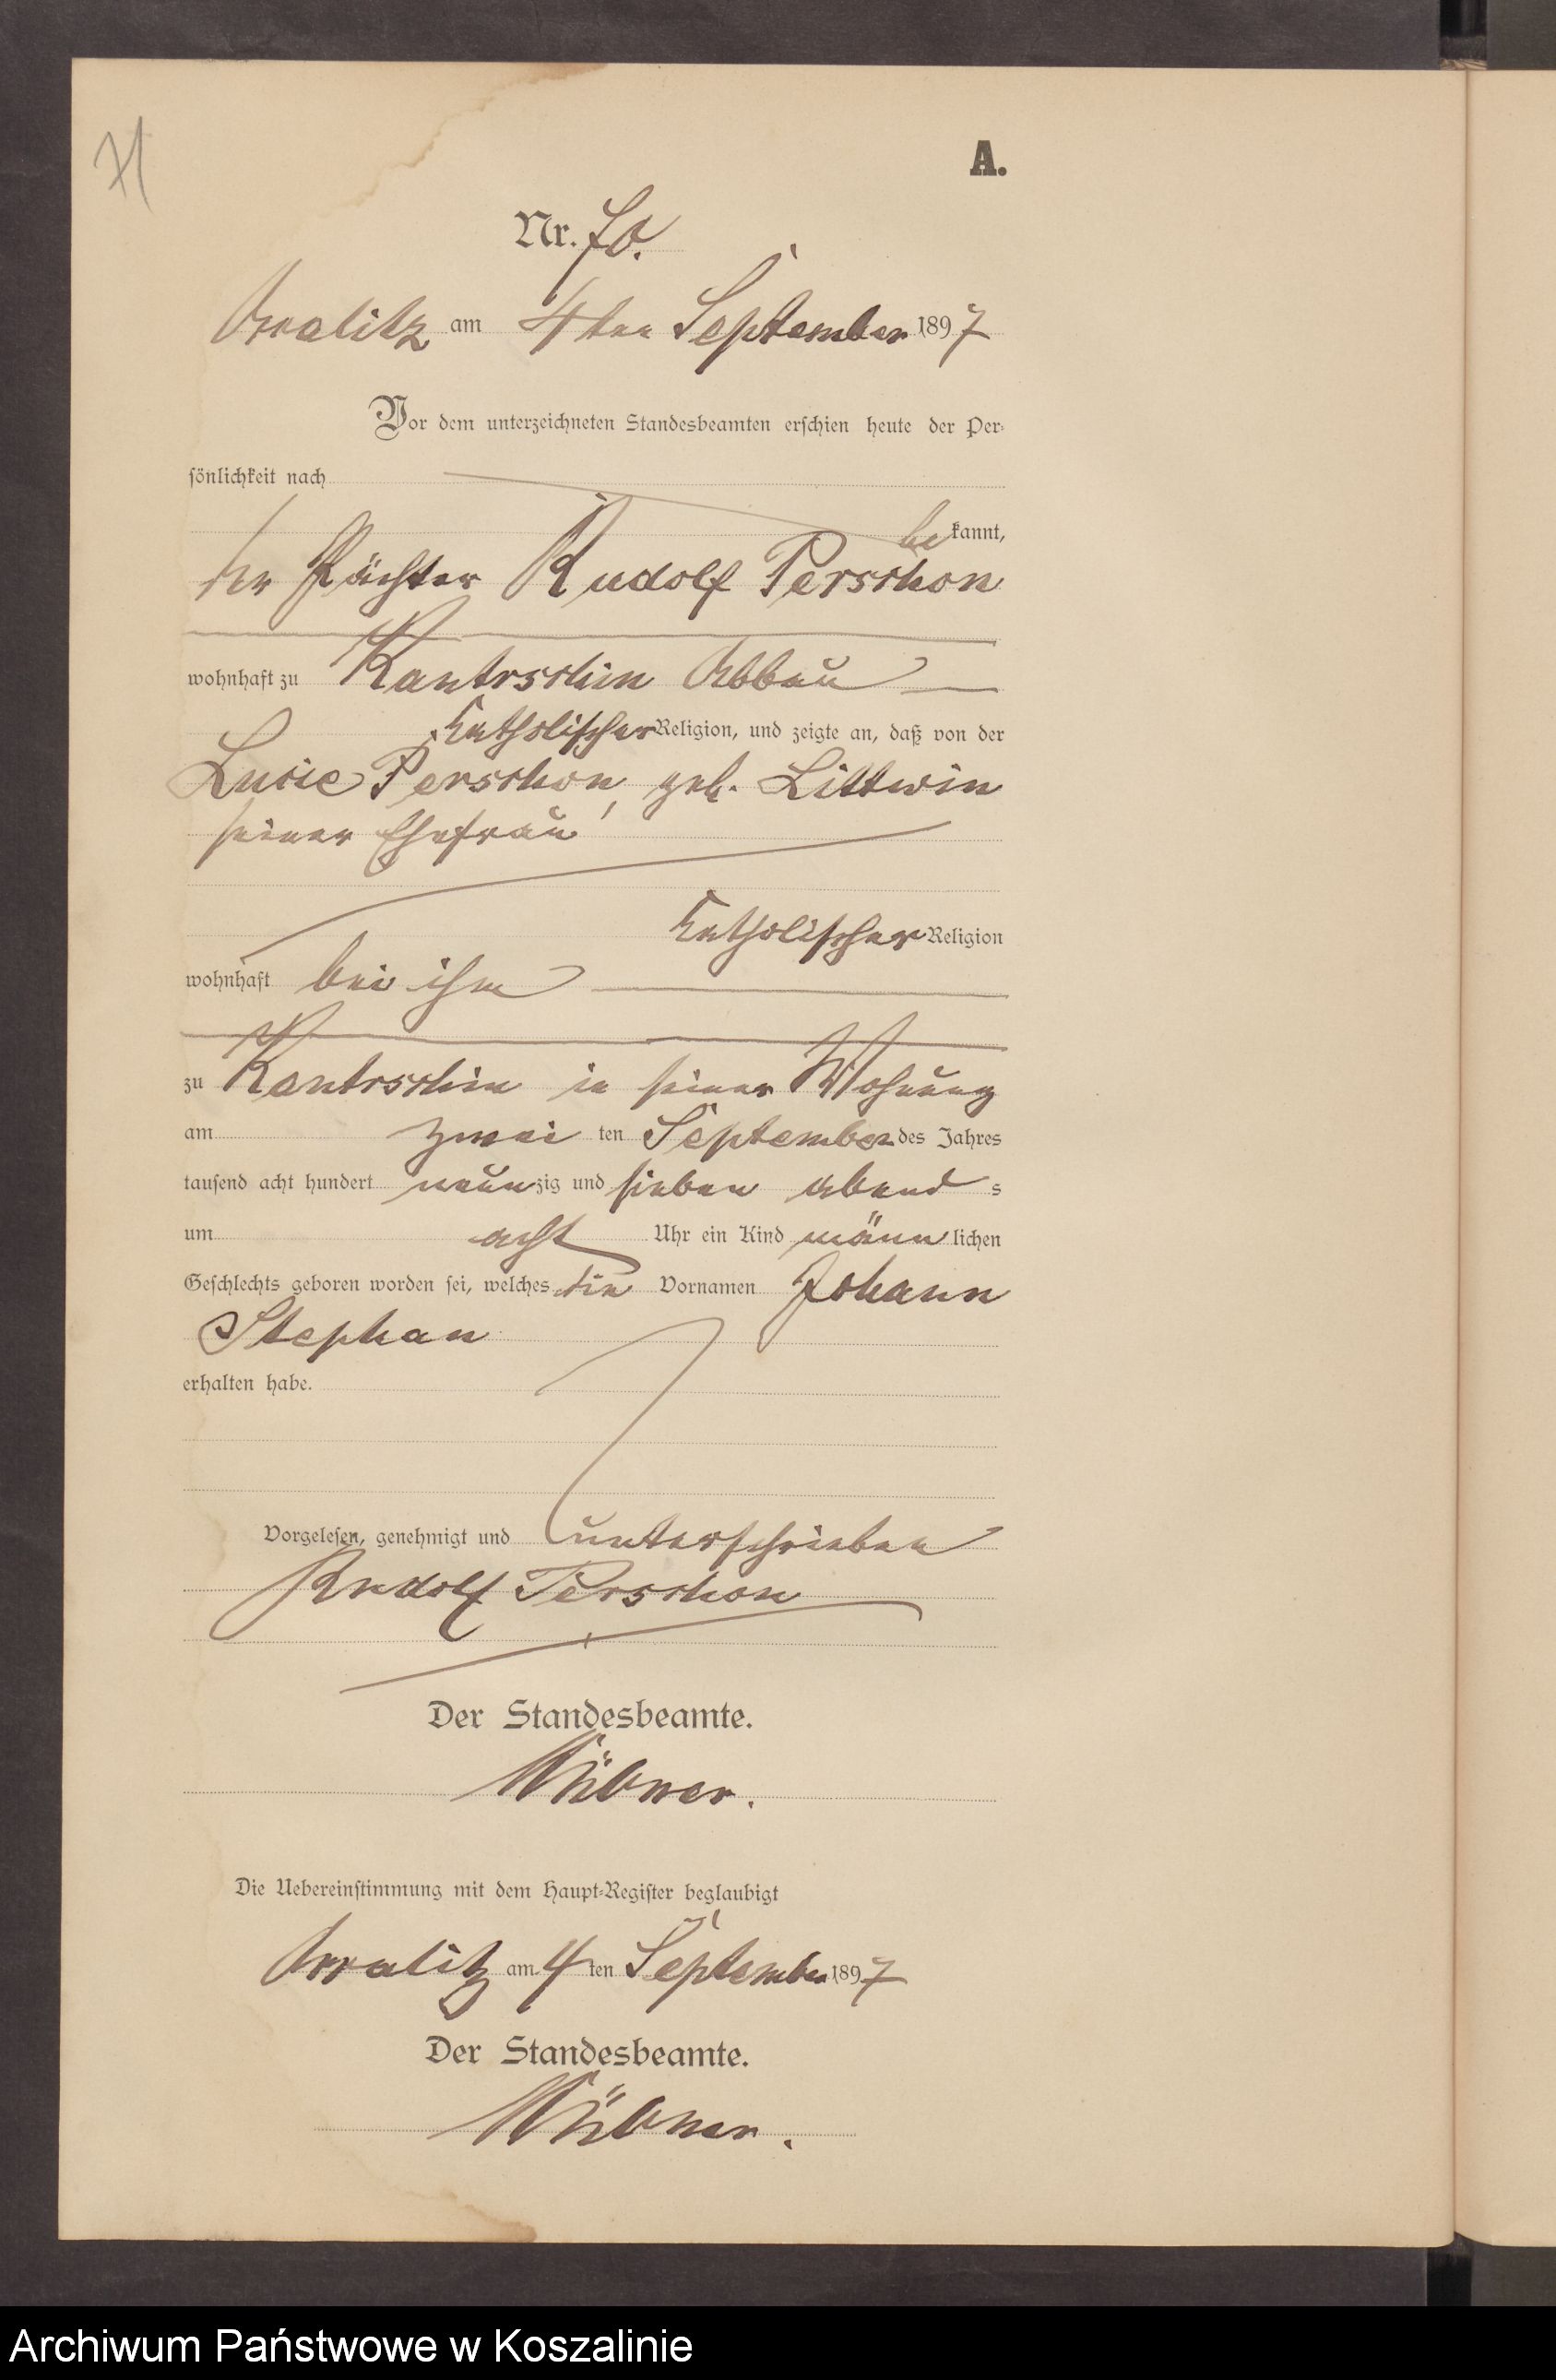 71
A.
Nr. 70.
am 4ten September 1897
Vor dem unterzeichneten Standesbeamten erschien heute der Per-
sönlichkeit nach
bekannt,
der Pächter Rudolf Perschon
wohnhaft zu Kantrschin Abbau
katholischer Religion, und zeigte an, daß von der
Lucie Perschon, geb. Littwin
seiner Ehefrau
katholischer Religion
wohnhaft bei ihm
zu Kantrschin in seiner Wohnung
am zwei ten September des Jahres
tausend acht hundert neunzig und sieben abends
um acht Uhr ein Kind männlichen
Geschlechts geboren worden sei, welches die Vornamen Johann
Stephan
erhalten habe.
Vorgelesen, genehmigt und unterschrieben
Rudolf Perschon
Der Standesbeamte.
Die Uebereinstimmung mit dem Haupt-Register beglaubigt
am 4ten September 1897
Der Standesbeamte.
Archiwum Państwowe w Koszalinie